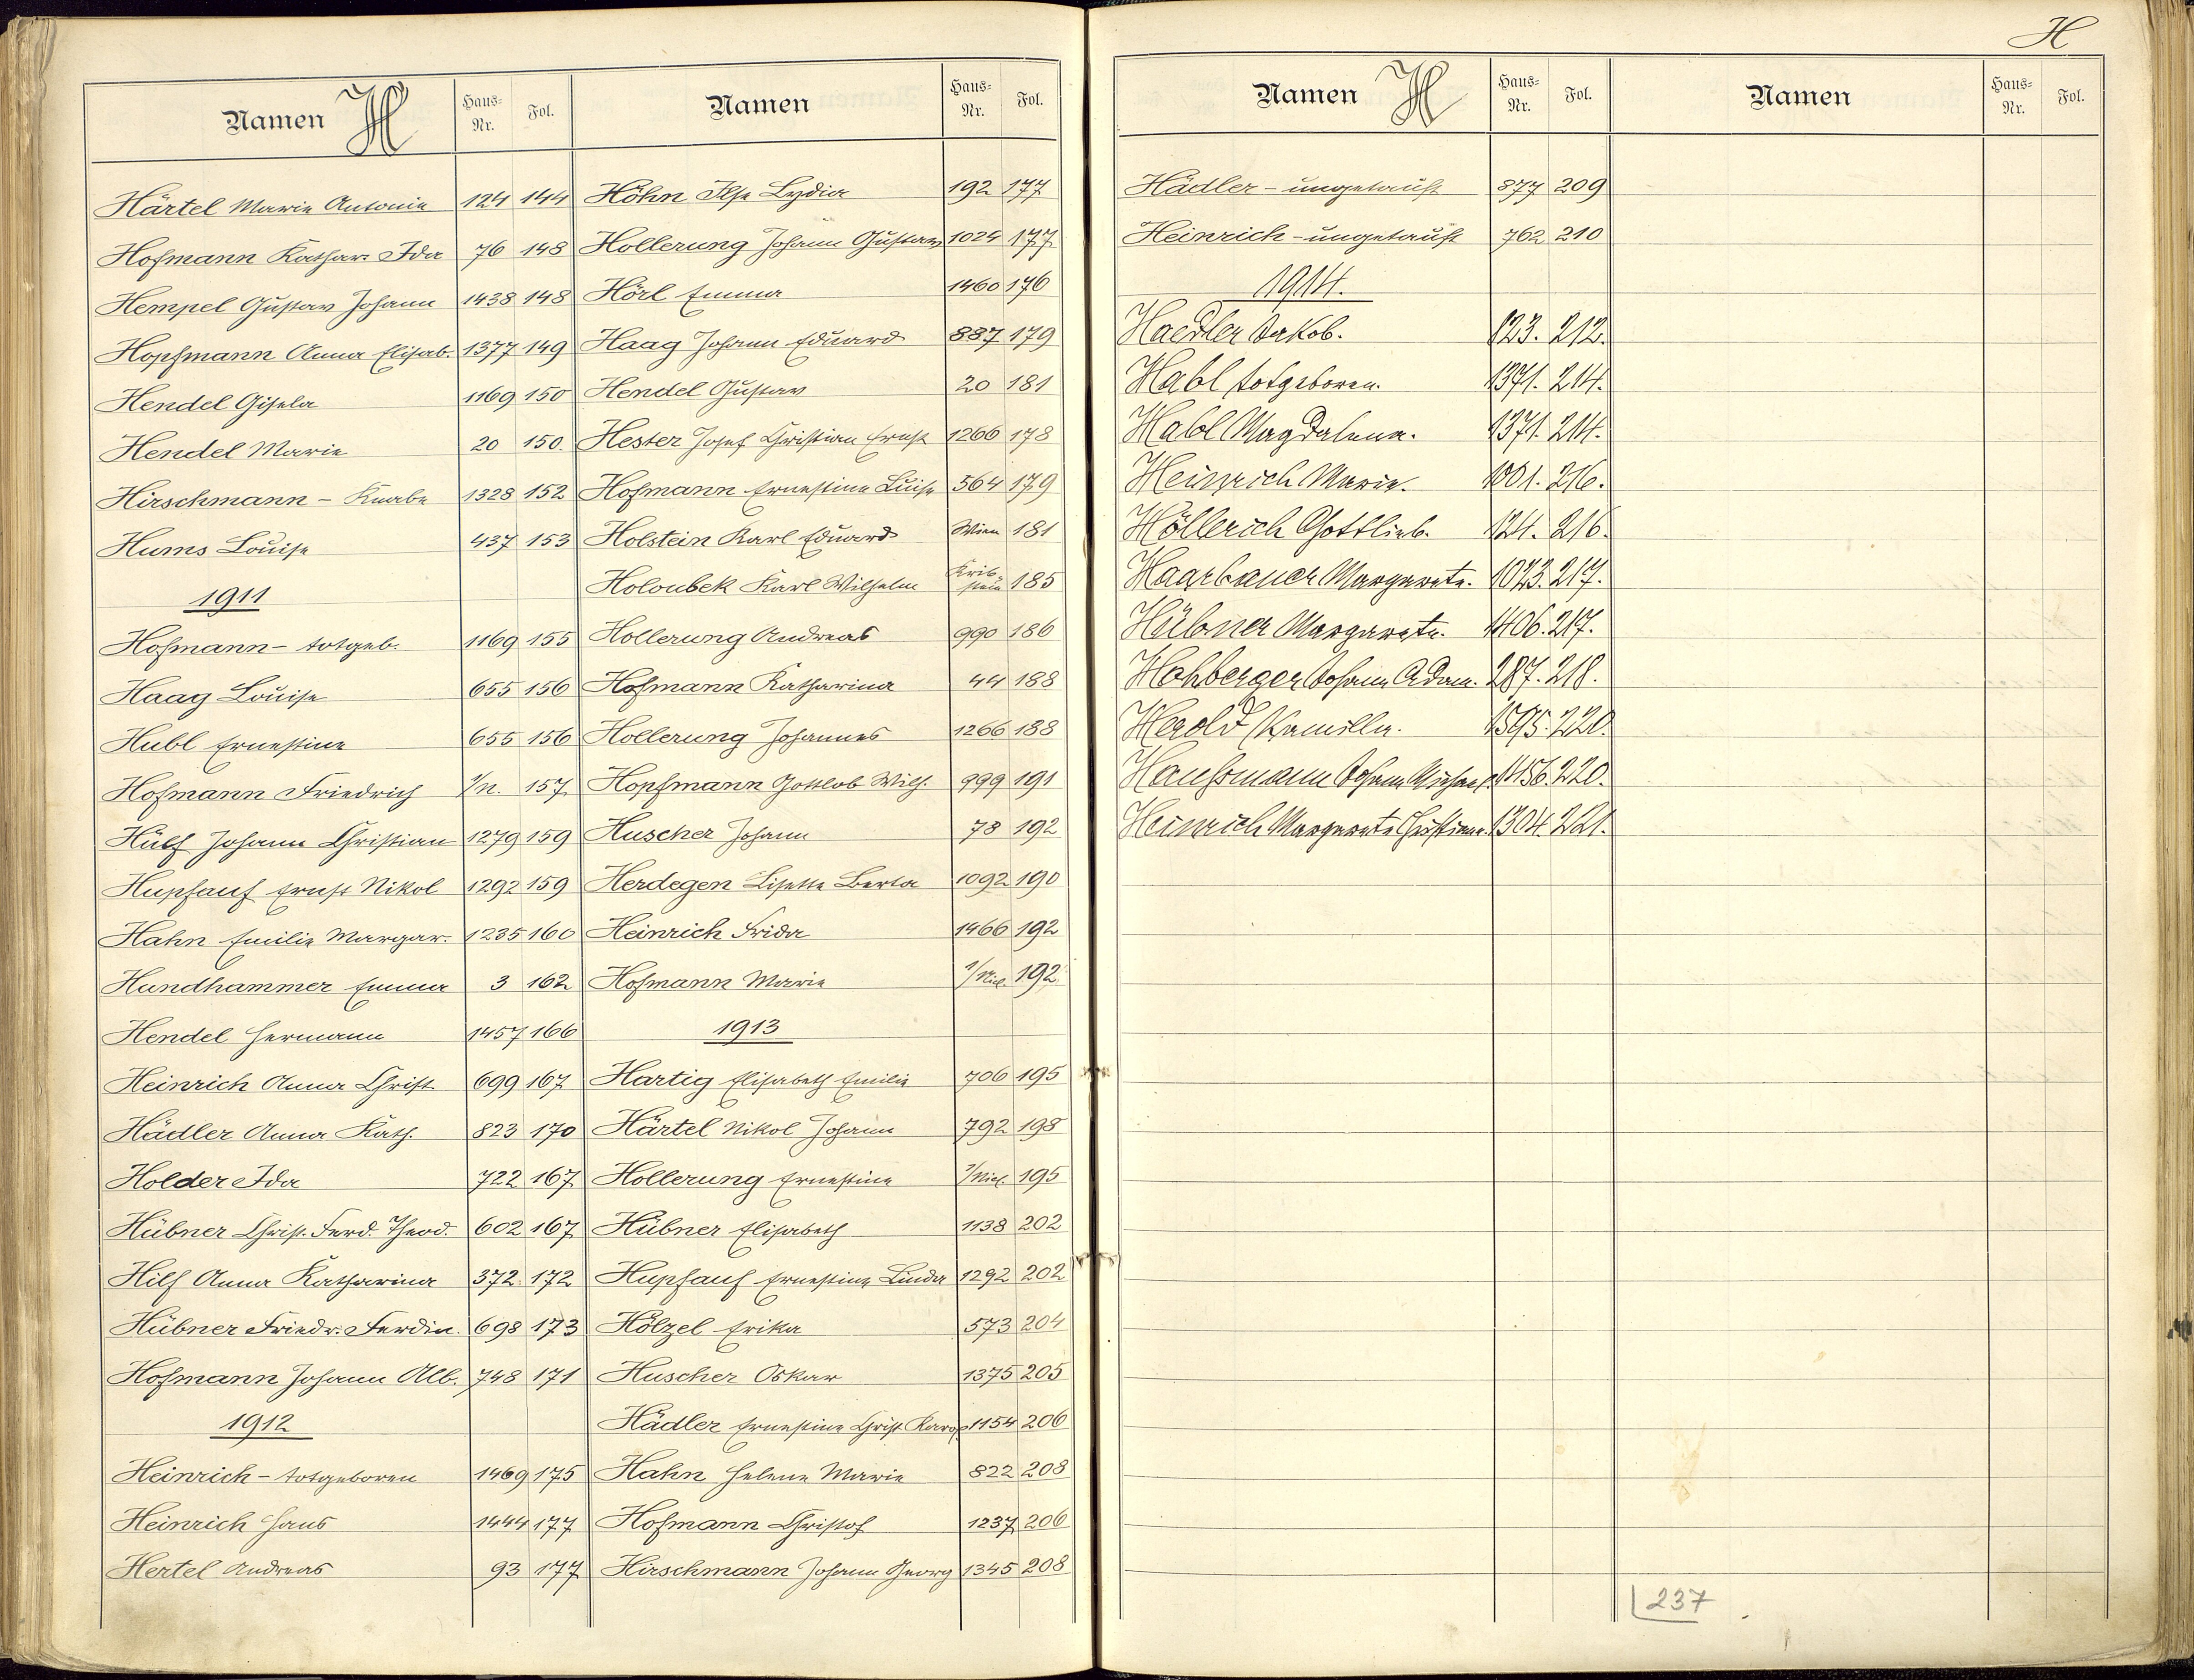 H
Namen H Haus-Nr. Fol.
Härtel Marie Antonie 124 144
Hofmann Kathar. Ida 76 148
Hempel Gustav Johann 1438 148
Hopfmann Anna Elisab. 1377 149
Hendel Gisela 1169 150
Hendel Marie 20 150.
Hirschmann - Knabe 1328 152
Hums Louise 437 153
1911
Hofmann - totgeb. 1169 155
Haag Louise 655 156
Hubl Ernestine 655 156
Hofmann Friedrich 157
Hülf Johann Christian 1279 159
Hupfauf Ernst Nikol 1292 159
Hahn Emilie Margar. 1235 160
Hundhammer Emma 3 162
Hendel Hermann 1457 166
Heinrich Anna Christ. 699 167
Hädler Anna Kath. 823 170
Holder Ida 722 167
Hübner Christ. Ferd. Theod. 602 167
Hilf Anna Katharina 372 172
Hübner Friedr. Ferdin. 698 173
Hofmann Johann Alb. 748 171
1912
Heinrich - totgeboren 1469 175
Heinrich Hans 1444 177
Hertel Andreas 93 177
Namen Haus-Nr. Fol.
Höhn Ilse Lydia 192 177
Hollerung Johann Gustav 1024 177
Hörl Emma 1460 176
Haag Johann Eduard 887 179
Hendel Gustav 20 181
Hester Josef Christian Ernst 1266 178
Hofmann Ernestine Luise 564 179
Holstein Karl Eduard Wien 181
Holoubek Karl Wilhelm 185
Hollerung Andreas 990 186
Hofmann Katharina 44 188
Hollerung Johannes 1266 188
Hopfmann Gottlob Wilh. 999 191
Huscher Johann 78 192
Herdegen Lisette Berta 1092 190
Heinrich Frida 1466 192
Hofmann Marie 192
1913
Hartig Elisabeth Emilie 706 195
Härtel Nikol Johann 792 198
Hollerung Ernestine 195
Hübner Elisabeth 1138 202
Hupfauf Ernestine Linda 1292 202
Hölzel Erika 573 204
Huscher Oskar 1375 205
Hädler Ernestine Christ. 1154 206
Hahn Helene Marie 822 208
Hofmann Christof 1237 206
Hirschmann Johann Georg 1345 208
Namen H Haus-Nr. Fol.
Hädler - ungetauft 877 209
Heinrich - ungetauft 762 210
1914.
Haedler Jakob. 123. 212.
Habl totgeboren. 1371. 214.
Habl Magdalena. 1371. 214.
Heinrich Marie. 1001. 216.
Höllerich Gottlieb. 124. 216.
Haarbauer Margarete. 1023. 217.
Hübner Margarete. 1406. 217.
Hohberger Johann Adam. 287. 218.
Herold Kamilla. 1595. 220.
Haussmann Johann Michael. 1156. 220.
Heinrich Margarete Christiane. 1304. 221.
Namen Haus-Nr. Fol.
237